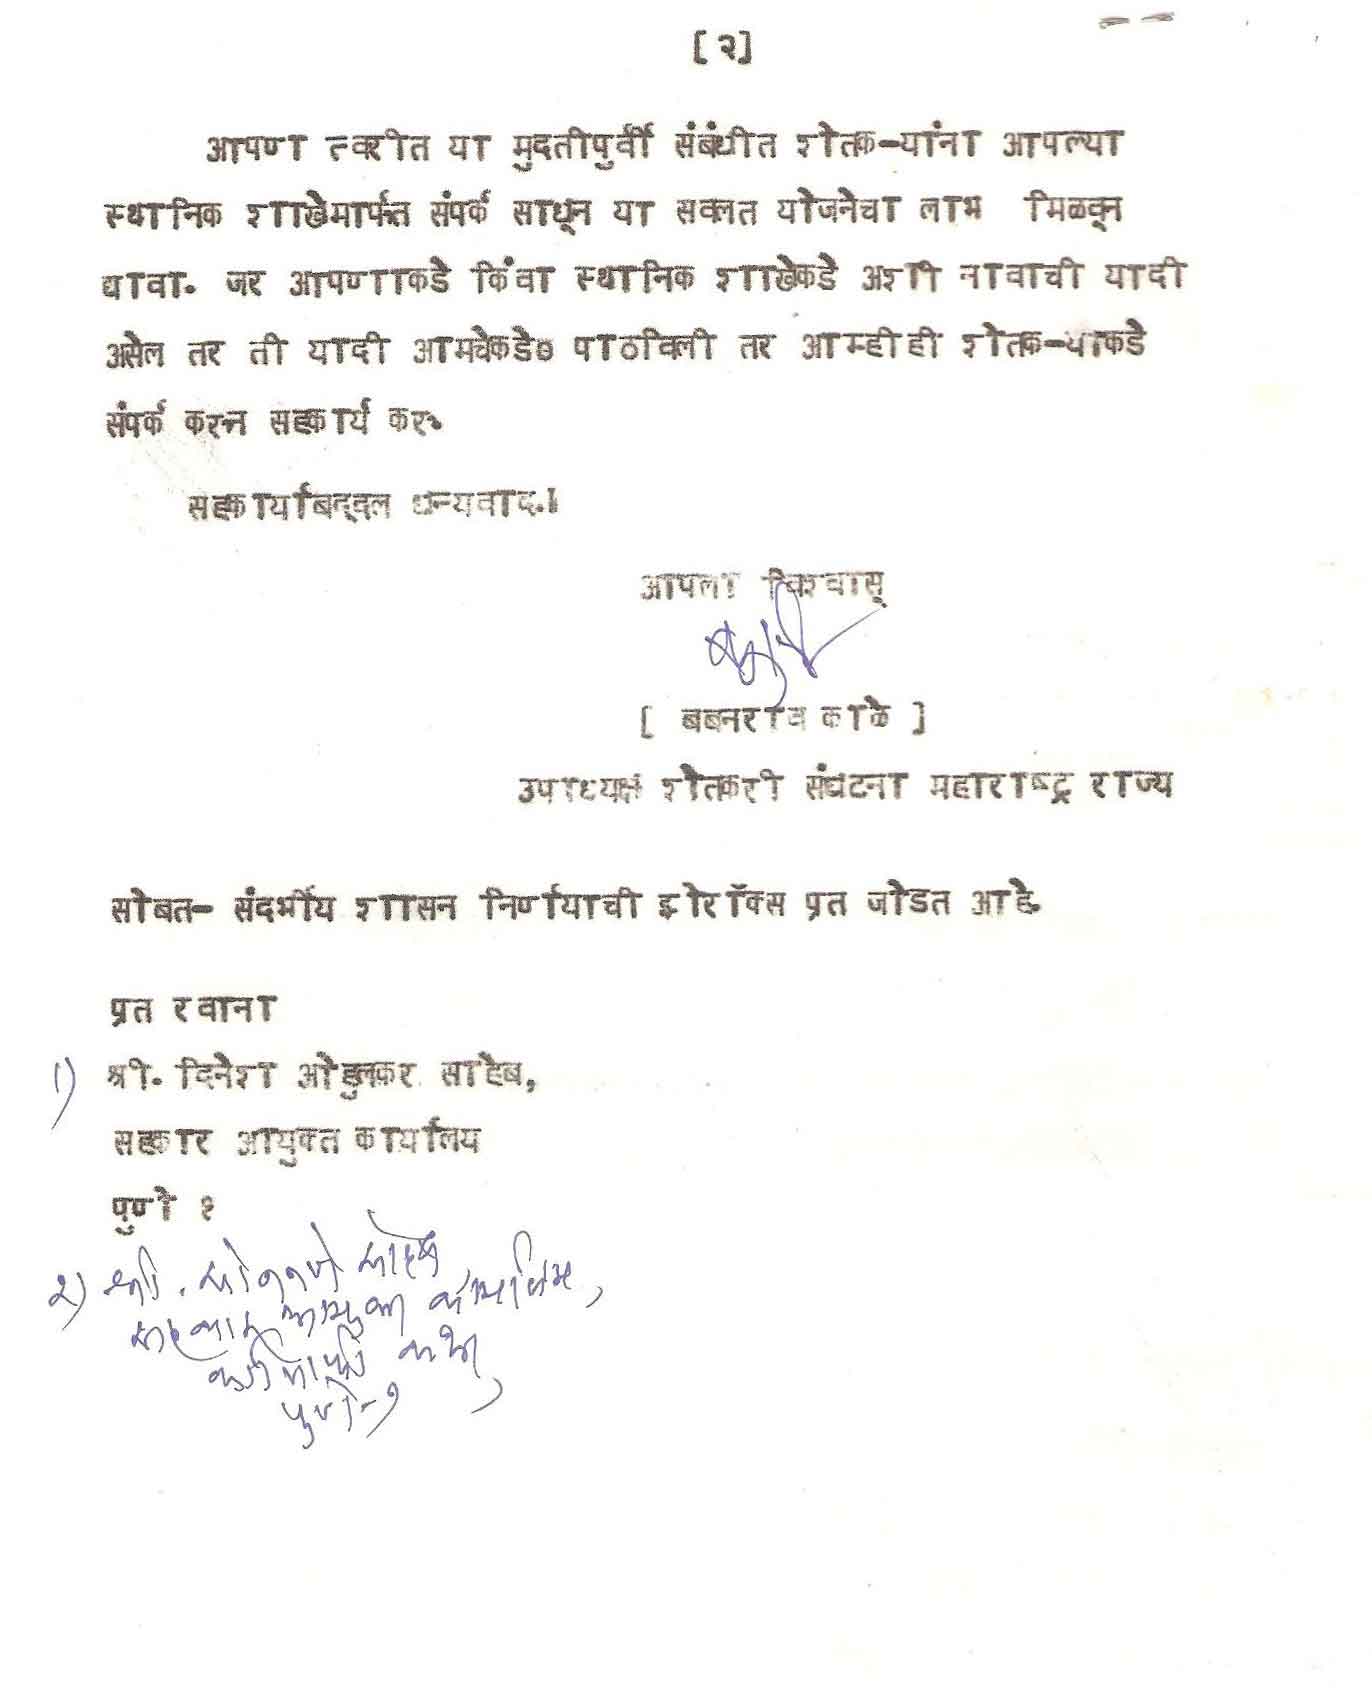 [ २ ]
आपण त्वरीत या मुदतीपुर्वी संबंधीत शेतक-यांना आपल्या
स्थानिक शाखेमार्फत संपर्क साधून या सवलत योजनेचा लाभ मिळवून
द्यावा. जर आपणाकडे किंवा स्थानिक शाखेकडे अशी नावाची यादी
असेल तर ती यादी आमचेकडे पाठविली तर आम्हीही शेतक-याकडे
संपर्क करून सहकार्य करू.
सहकार्याबद्दल धन्यवाद.।
आपला विश्वासू
[ बबनराव काळे ]
उपाध्यक्ष शेतकरी संघटना महाराष्ट्र राज्य
सोबत- संदर्भीय शासन निर्णयाची झेरॉक्स प्रत जोडत आहे.
प्रत रवाना
1) श्री. दिनेश ओडुलकर साहेब,
सहकार आयुक्त कार्यालय
पुणे १
२) श्री. साहेब,
सहकार आयुक्त कार्यालय,
कर्जमाफी कक्ष,
पुणे-१